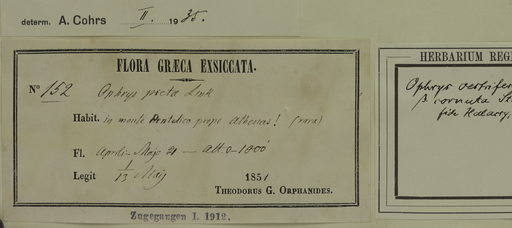 determ. A. Cohrs II. 1935.
FLORA GRÆCA EXSICCATA.
Nº 152 Ophrys picta Link
Habit. in monte Pentelico prope Athenas! (rara)
Fl. Aprili-Majo — alt. 0-1000'
Legit 1/13 Maij 1851
THEODORUS G. ORPHANIDES.
Zugegangen I. 1912.
HERBARIUM REGI
Ophrys oestrifer
β cornuta St
fide Halacsy,